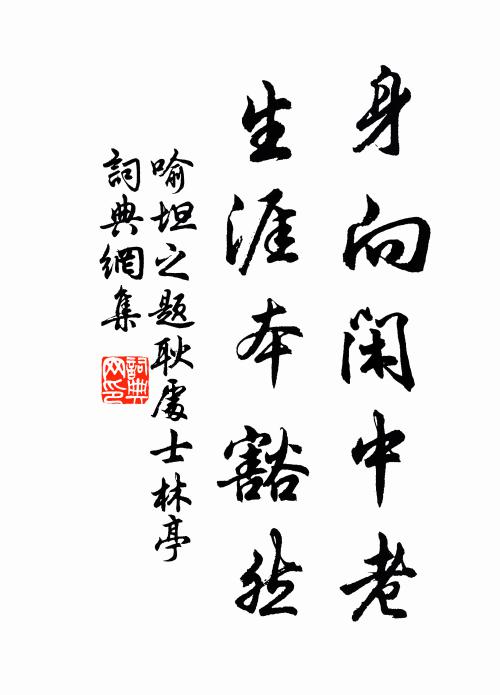 身向闲中老
生涯本豁然
喻坦之题耿處士林亭
詞典網集
詞典網印